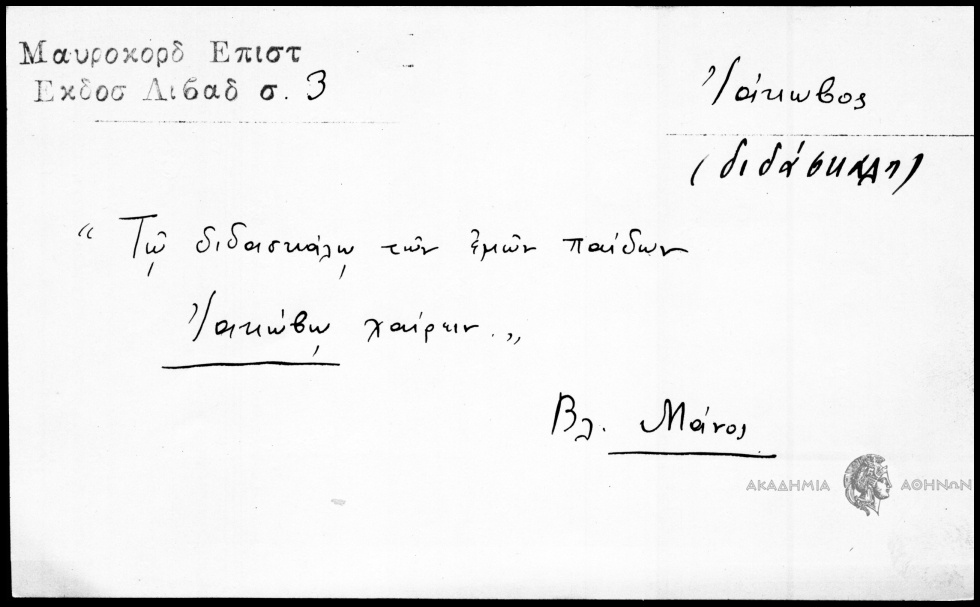 Μαυροκορδ Επιστ
Εκδοσ Λιβαδ σ. 3
Ἰάκωβος
(διδάσκαλ)
“ Τῷ διδασκάλῳ τῶν ἐμῶν παίδων
Ἰακώβῳ χαίρειν. „
Βλ. Μάνος
ΑΚΑΔΗΜΙΑ ΑΘΗΝΩΝ